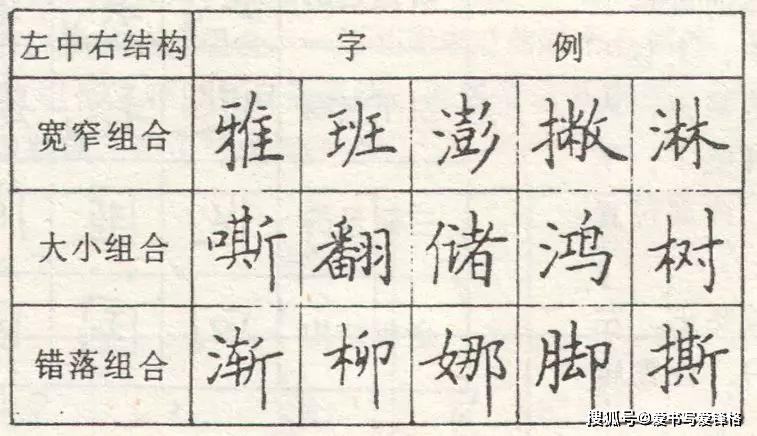 左中右结构 字 例
宽窄组合 雅 班 澎 撇 淋
大小组合 嘶 翻 储 鸿 树
错落组合 渐 柳 娜 脚 撕
搜狐号@爱书写爱锋格